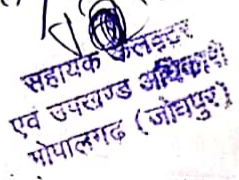 सहायक कलेक्टर
एवं उपखण्ड अधिकारी
गोपालगढ (जोधपुर)